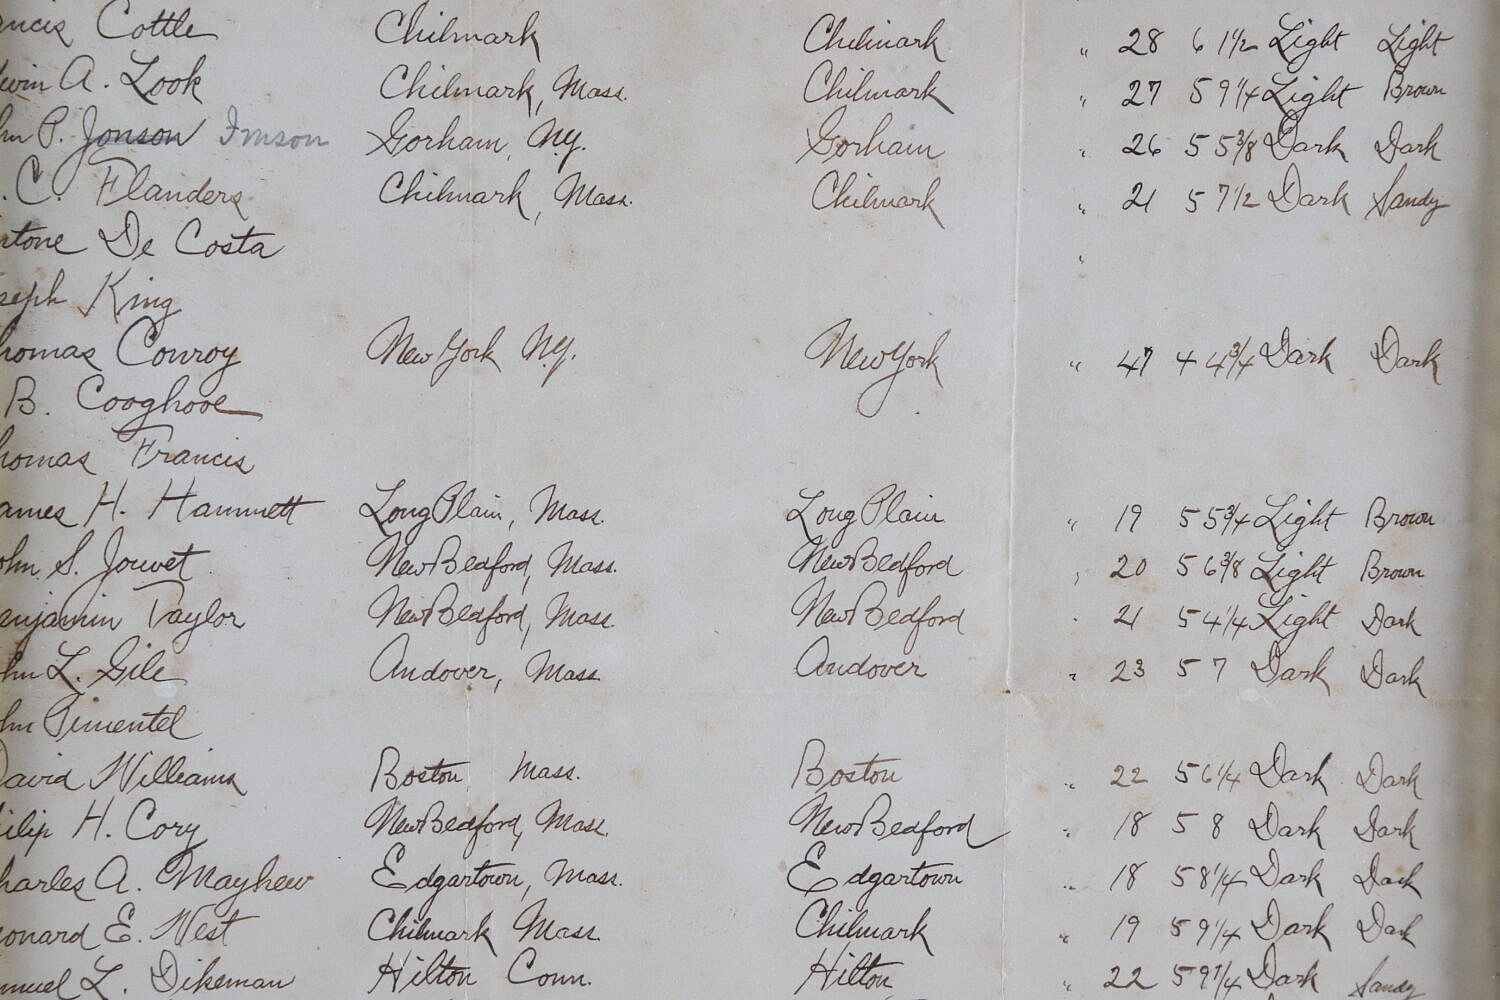 ncis Cottle Chilmark Chilmark " 28 6 1 1/2 Light Light
win A. Look Chilmark, Mass. Chilmark " 27 5 9 1/4 Light Brown
hn P. Jonson Imson Gorham, N.Y. Gorham " 26 5 5 3/8 Dark Dark
. C. Flanders Chilmark, Mass. Chilmark " 21 5 7 1/2 Dark Sandy
ntone De Costa "
seph King
homas Conroy New York N.Y. New York " 47 4 4 3/4 Dark Dark
B. Cooghove
homas Francis
ames H. Hammett Long Plain, Mass. Long Plain " 19 5 5 3/4 Light Brown
ohn S. Jouvet New Bedford, Mass. New Bedford " 20 5 6 3/8 Light Brown
enjamin Taylor New Bedford, Mass. New Bedford " 21 5 4 1/4 Light Dark
hn L. Gile Andover, Mass. Andover " 23 5 7 Dark Dark
hn Pimentel
David Williams Boston, Mass. Boston " 22 5 6 1/4 Dark Dark
ilip H. Cory New Bedford, Mass. New Bedford " 18 5 8 Dark Dark
harles A. Mayhew Edgartown, Mass. Edgartown " 18 5 8 1/4 Dark Dark
eonard E. West Chilmark Mass. Chilmark " 19 5 9 1/4 Dark Dark
muel L. Dikeman Hilton Conn. Hilton " 22 5 9 1/4 Dark Sandy